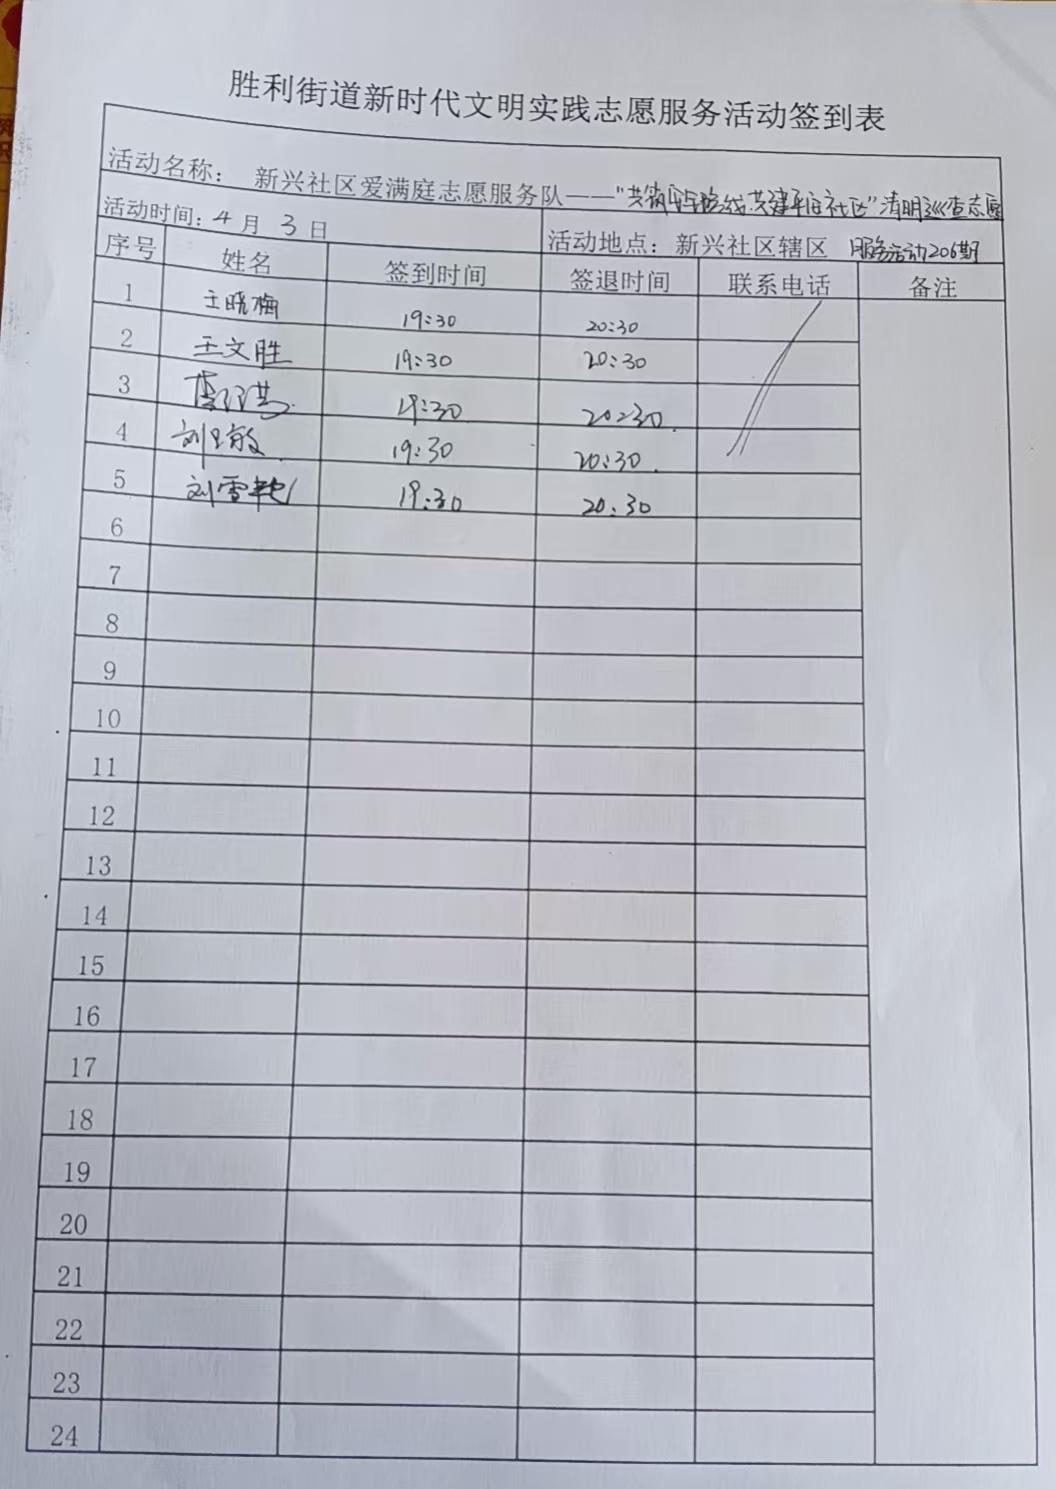 胜利街道新时代文明实践志愿服务活动签到表
活动名称： 新兴社区爱满庭志愿服务队——“共筑安全路线 共建平安社区”清明巡查志愿
服务活动206期
活动时间：4月3日 活动地点：新兴社区辖区
序号 姓名 签到时间 签退时间 联系电话 备注
1 王晓梅 19:30 20:30
2 王文胜 19:30 20:30
3 19:30 20:30
4 19:30 20:30
5 刘雪艳 19:30 20:30
6
7
8
9
10
11
12
13
14
15
16
17
18
19
20
21
22
23
24